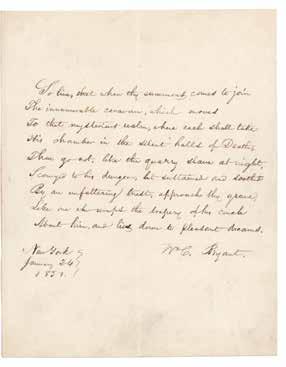 So live, that when thy summons comes to join
The innumerable caravan, which moves
To that mysterious realm, where each shall take
His chamber in the silent halls of Death,
Thou go not, like the quarry slave at night,
Scourged to his dungeon, but sustained and soothed
By an unfaltering trust, approach thy grave,
Like one who wraps the drapery of his couch
About him, and lies down to pleasant dreams.
Wm C. Bryant.
New York
January 24